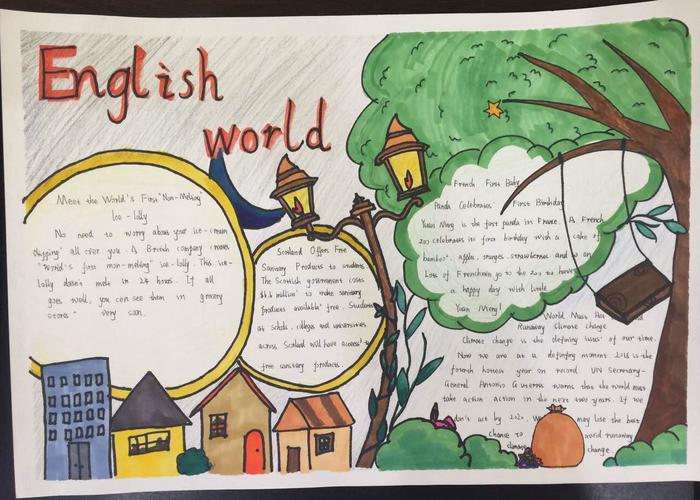 English
world
Meet the World's First "Non-Melting"
Ice-lolly
No need to worry about your ice-cream
dripping all over you. A British company creates
"World's first non-melting" ice-lolly. This ice-
lolly doesn't melt in 24 hours. If all
goes well, you can see them in grocery
stores" very soon.
Scotland Offers Free
Sanitary Products to students.
The Scottish government costs
$6.4 million to make sanitary
products available free. Students
at schols, colleges and universities
across Scotland will have access to
free sanitary products.
French First Baby
Panda Celebrates' First Birthday
Yuan Meng is the first panda in France. A French
zoo celebrates its first birthday with a cake of
bamboo, apple, oranges, strawberries and so on
Lots of Frenchmen go to the zoo to have
a happy day with little
Yuan Meng!
World Must
Runaway Climate change
Climate change is the defining issue of our time.
Now we are at a defining moment. 2018 is the
fourth hottest year on record. UN Secretary-
General Antonio Guterres warns that the world must
take action action in the next two years. If we
don't act by 2020 We may lose the best
chance to avoid runaway
climate change.